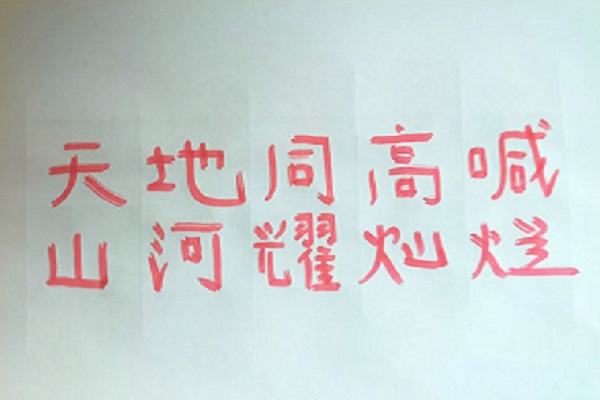 天地同高喊
山河耀灿烂